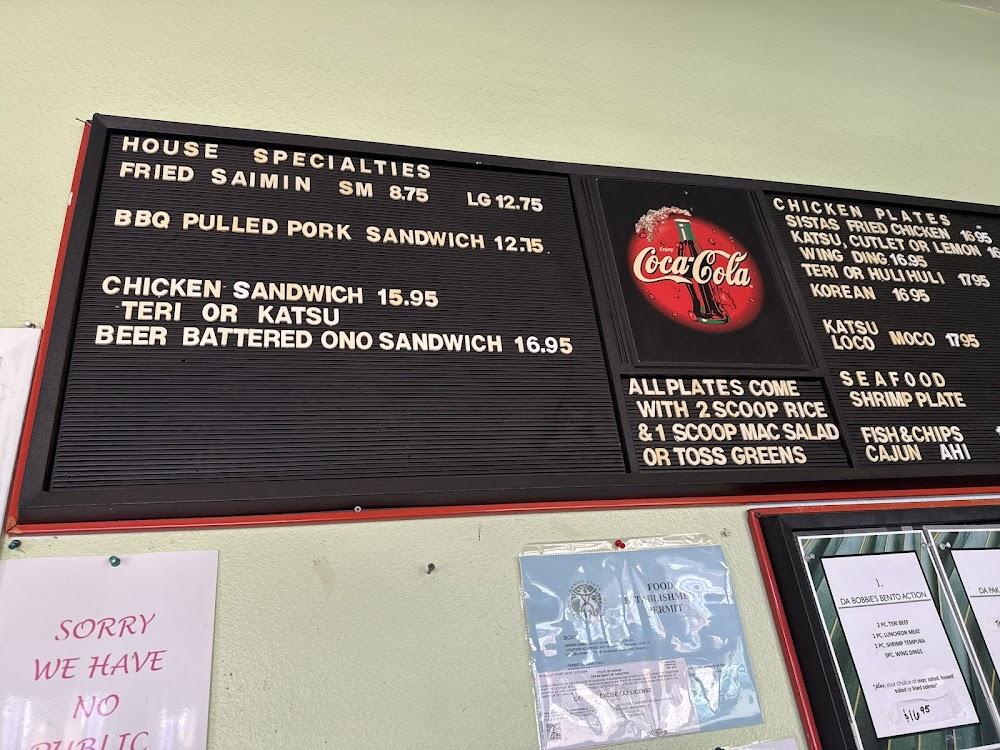 HOUSE SPECIALTIES
FRIED SAIMIN SM 8.75 LG 12.75
BBQ PULLED PORK SANDWICH 12.75
CHICKEN SANDWICH 15.95
TERI OR KATSU
BEER BATTERED ONO SANDWICH 16.95
Enjoy
Coca-Cola
ALL PLATES COME
WITH 2 SCOOP RICE
& 1 SCOOP MAC SALAD
OR TOSS GREENS
CHICKEN PLATES
SISTAS FRIED CHICKEN 16.95
KATSU, CUTLET OR LEMON
WING DING 16.95
TERI OR HULI HULI 17.95
KOREAN 16.95
KATSU
LOCO MOCO 17.95
SEAFOOD
SHRIMP PLATE
FISH & CHIPS
CAJUN AHI
SORRY
WE HAVE
NO
PUBLIC
FOOD
ESTABLISHMENT
PERMIT
STATE OF HAWAII
DEPARTMENT OF TAXATION
EXCISE TAX LICENSE
1.
DA BOBBIE'S BENTO ACTION
2 PC. TERI BEEF
1 PC. LUNCHEON MEAT
2 PC. SHRIMP TEMPURA
3PC. WING DINGS
*plus, your choice of mac salad, tossed
salad or fried saimin*
$16.95
DA PAK